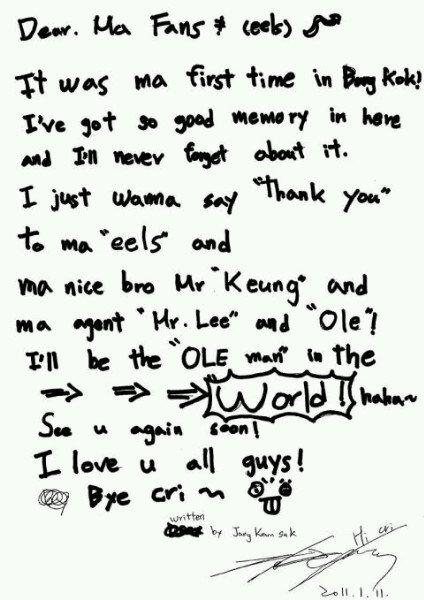 Dear. Ma Fans * (eels)
It was ma first time in Bang Kok!
I've got so good memory in here
and I'll never forget about it.
I just wanna say "Thank you"
to ma "eels" and
ma nice bro Mr "Keung" and
ma agent "Mr. Lee" and "Ole"!
I'll be the "OLE man" in the
⇒ ⇒ ⇒ World! haha~
See u again soon!
I love u all guys!
Bye cri ~
written
by Jang Keun Suk
Hi cri
2011.1.11.